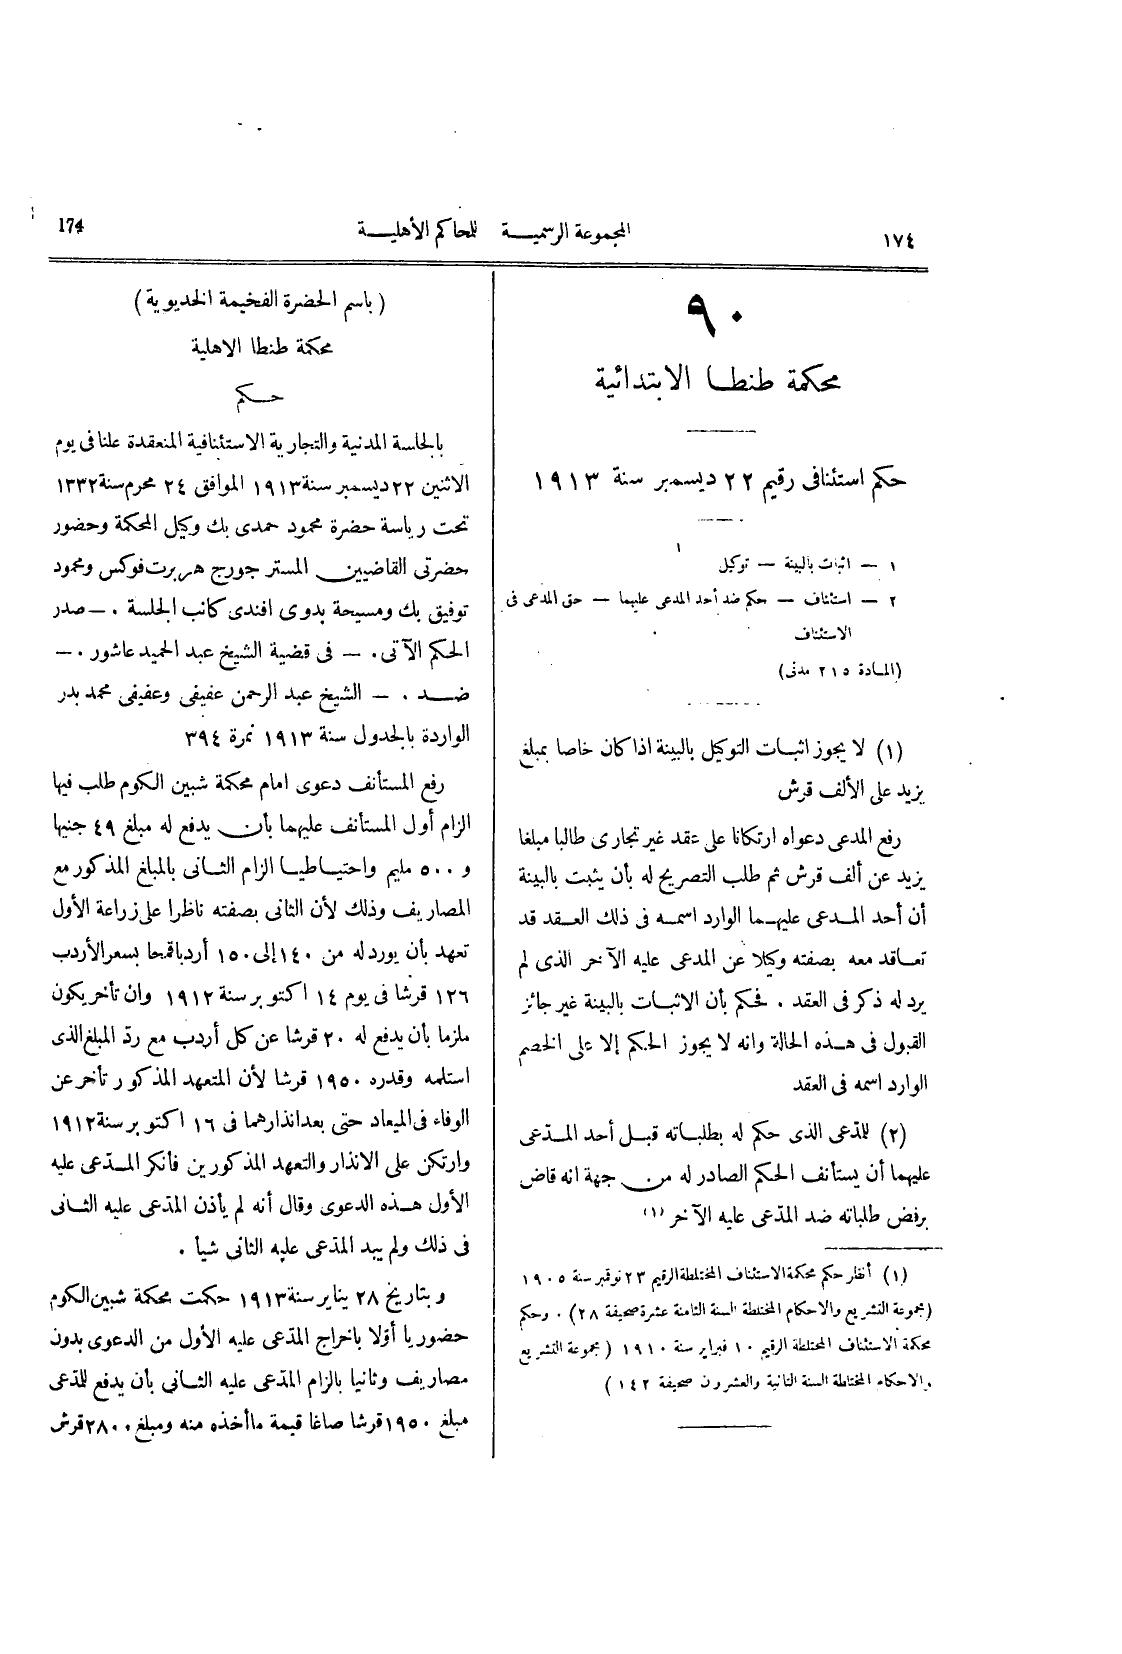 ١٧٤
المجموعة الرسمية للمحاكم الأهلية
174
٩٠
محكمة طنطا الابتدائية
حكم استئنافى رقيم ٢٢ ديسمبر سنة ١٩١٣
١ — اثبات بالبينة — توكيل
٢ — استئناف — حكم ضد أحد المدعى عليهما — حق المدعى فى
الاستئناف
(المادة ٢١٥ مدنى)
(١) لا يجوز اثبات التوكيل بالبينة اذا كان خاصا بمبلغ
يزيد على الألف قرش
رفع المدعى دعواه ارتكانا على عقد غير تجارى طالبا مبلغا
يزيد عن ألف قرش ثم طلب التصريح له بأن يثبت بالبينة
أن أحد المدعى عليهما الوارد اسمه فى ذلك العقد قد
تعاقد معه بصفته وكيلا عن المدعى عليه الآخر الذى لم
يرد له ذكر فى العقد . فحكم بأن الاثبات بالبينة غير جائز
القبول فى هذه الحالة وانه لا يجوز الحكم إلا على الخصم
الوارد اسمه فى العقد
(٢) للمدّعى الذى حكم له بطلباته قبل أحد المدّعى
عليهما أن يستأنف الحكم الصادر له من جهة انه قاض
برفض طلباته ضد المدّعى عليه الآخر (١)
(١) أنظر حكم محكمة الاستئناف المختلطة الرقيم ٢٣ نوفمبر سنة ١٩٠٥
(مجموعة التشريع والاحكام المختلطة السنة الثامنة عشرة صحيفة ٢٨) . وحكم
محكمة الاستئناف المختلطة الرقيم ١٠ فبراير سنة ١٩١٠ (مجموعة التشريع
والاحكام المختلطة السنة الثانية والعشرون صحيفة ١٤٢)
(باسم الحضرة الفخيمة الخديوية)
محكمة طنطا الاهلية
حكم
بالجلسة المدنية والتجارية الاستئنافية المنعقدة علنا فى يوم
الاثنين ٢٢ ديسمبر سنة ١٩١٣ الموافق ٢٤ محرم سنة ١٣٣٢
تحت رياسة حضرة محمود حمدى بك وكيل المحكمة وحضور
حضرتى القاضيين المستر جورج هربرت فوكس ومحمود
توفيق بك ومسيحة بدوى افندى كاتب الجلسة . — صدر
الحكم الآتى . — فى قضية الشيخ عبد الحميد عاشور . —
ضد . — الشيخ عبد الرحمن عفيفى وعفيفى محمد بدر
الواردة بالجدول سنة ١٩١٣ نمرة ٣٩٤
رفع المستأنف دعوى امام محكمة شبين الكوم طلب فيها
الزام أول المستأنف عليهما بأن يدفع له مبلغ ٤٩ جنيها
و ٥٠٠ مليم واحتياطيا الزام الثانى بالمبلغ المذكور مع
المصاريف وذلك لأن الثانى بصفته ناظرا على زراعة الأول
تعهد بأن يورد له من ١٤٠ إلى ١٥٠ أردبا قمحا بسعر الأردب
١٢٦ قرشا فى يوم ١٤ اكتوبر سنة ١٩١٢ وان تأخر يكون
ملزما بأن يدفع له ٢٠ قرشا عن كل أردب مع ردّ المبلغ الذى
استلمه وقدره ١٩٥٠ قرشا لأن المتعهد المذكور تأخر عن
الوفاء فى الميعاد حتى بعد انذارهما فى ١٦ اكتوبر سنة ١٩١٢
وارتكن على الانذار والتعهد المذكورين فأنكر المدّعى عليه
الأول هذه الدعوى وقال أنه لم يأذن المدّعى عليه الثانى
فى ذلك ولم يبد المدّعى عليه الثانى شيأ .
وبتاريخ ٢٨ يناير سنة ١٩١٣ حكمت محكمة شبين الكوم
حضوريا أوّلا باخراج المدّعى عليه الأول من الدعوى بدون
مصاريف وثانيا بالزام المدّعى عليه الثانى بأن يدفع للمدّعى
مبلغ ١٩٥٠ قرشا صاغا قيمة ما أخذه منه ومبلغ ٢٨٠٠ قرش